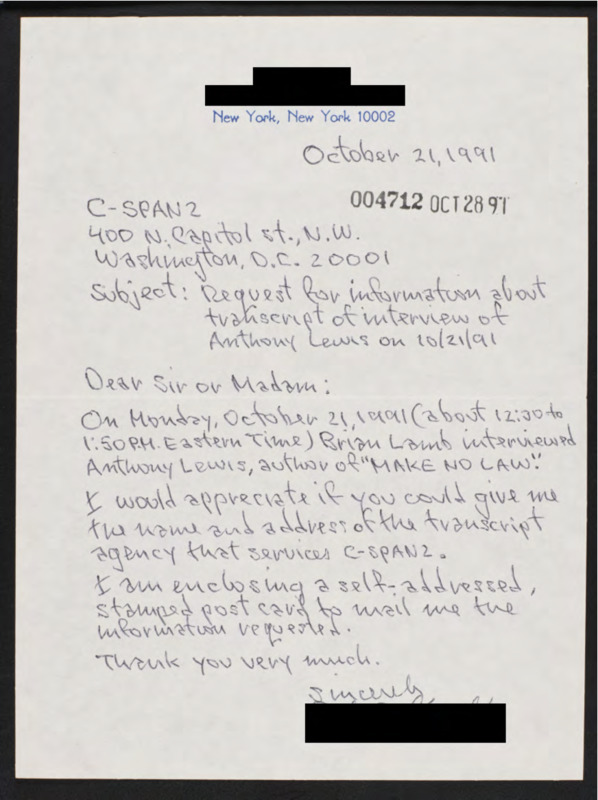 New York, New York 10002
October 21, 1991
004712 OCT 28 91
C-SPAN2
400 N. Capitol st., N.W.
Washington, D.C. 20001
Subject: Request for information about
transcript of interview of
Anthony Lewis on 10/21/91
Dear Sir or Madam:
On Monday, October 21, 1991 (about 12:30 to
1:50 P.M. Eastern Time) Brian Lamb interviewed
Anthony Lewis, author of "MAKE NO LAW."
I would appreciate if you could give me
the name and address of the transcript
agency that services C-SPAN2.
I am enclosing a self-addressed,
stamped post card to mail me the
information requested.
Thank you very much.
Sincerely